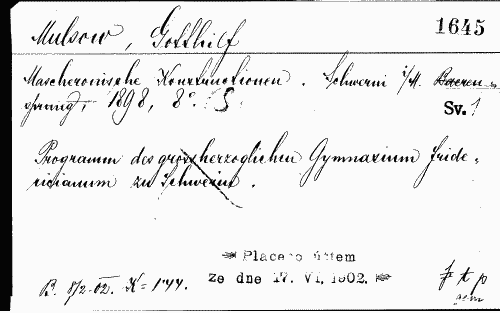 Mulsow, Gotthilf
1645
Mascheronische Konstruktionen. Schwerin i/M. Baeren-
sprung, 1898, 8°. S.
Sv. 1
Programm des grossherzoglichen Gymnasium Fride-
ricianum zu Schwerin.
Placeno účtem
ze dne 17. VI. 1902.
B. 8/2. 02. K = 1.44.